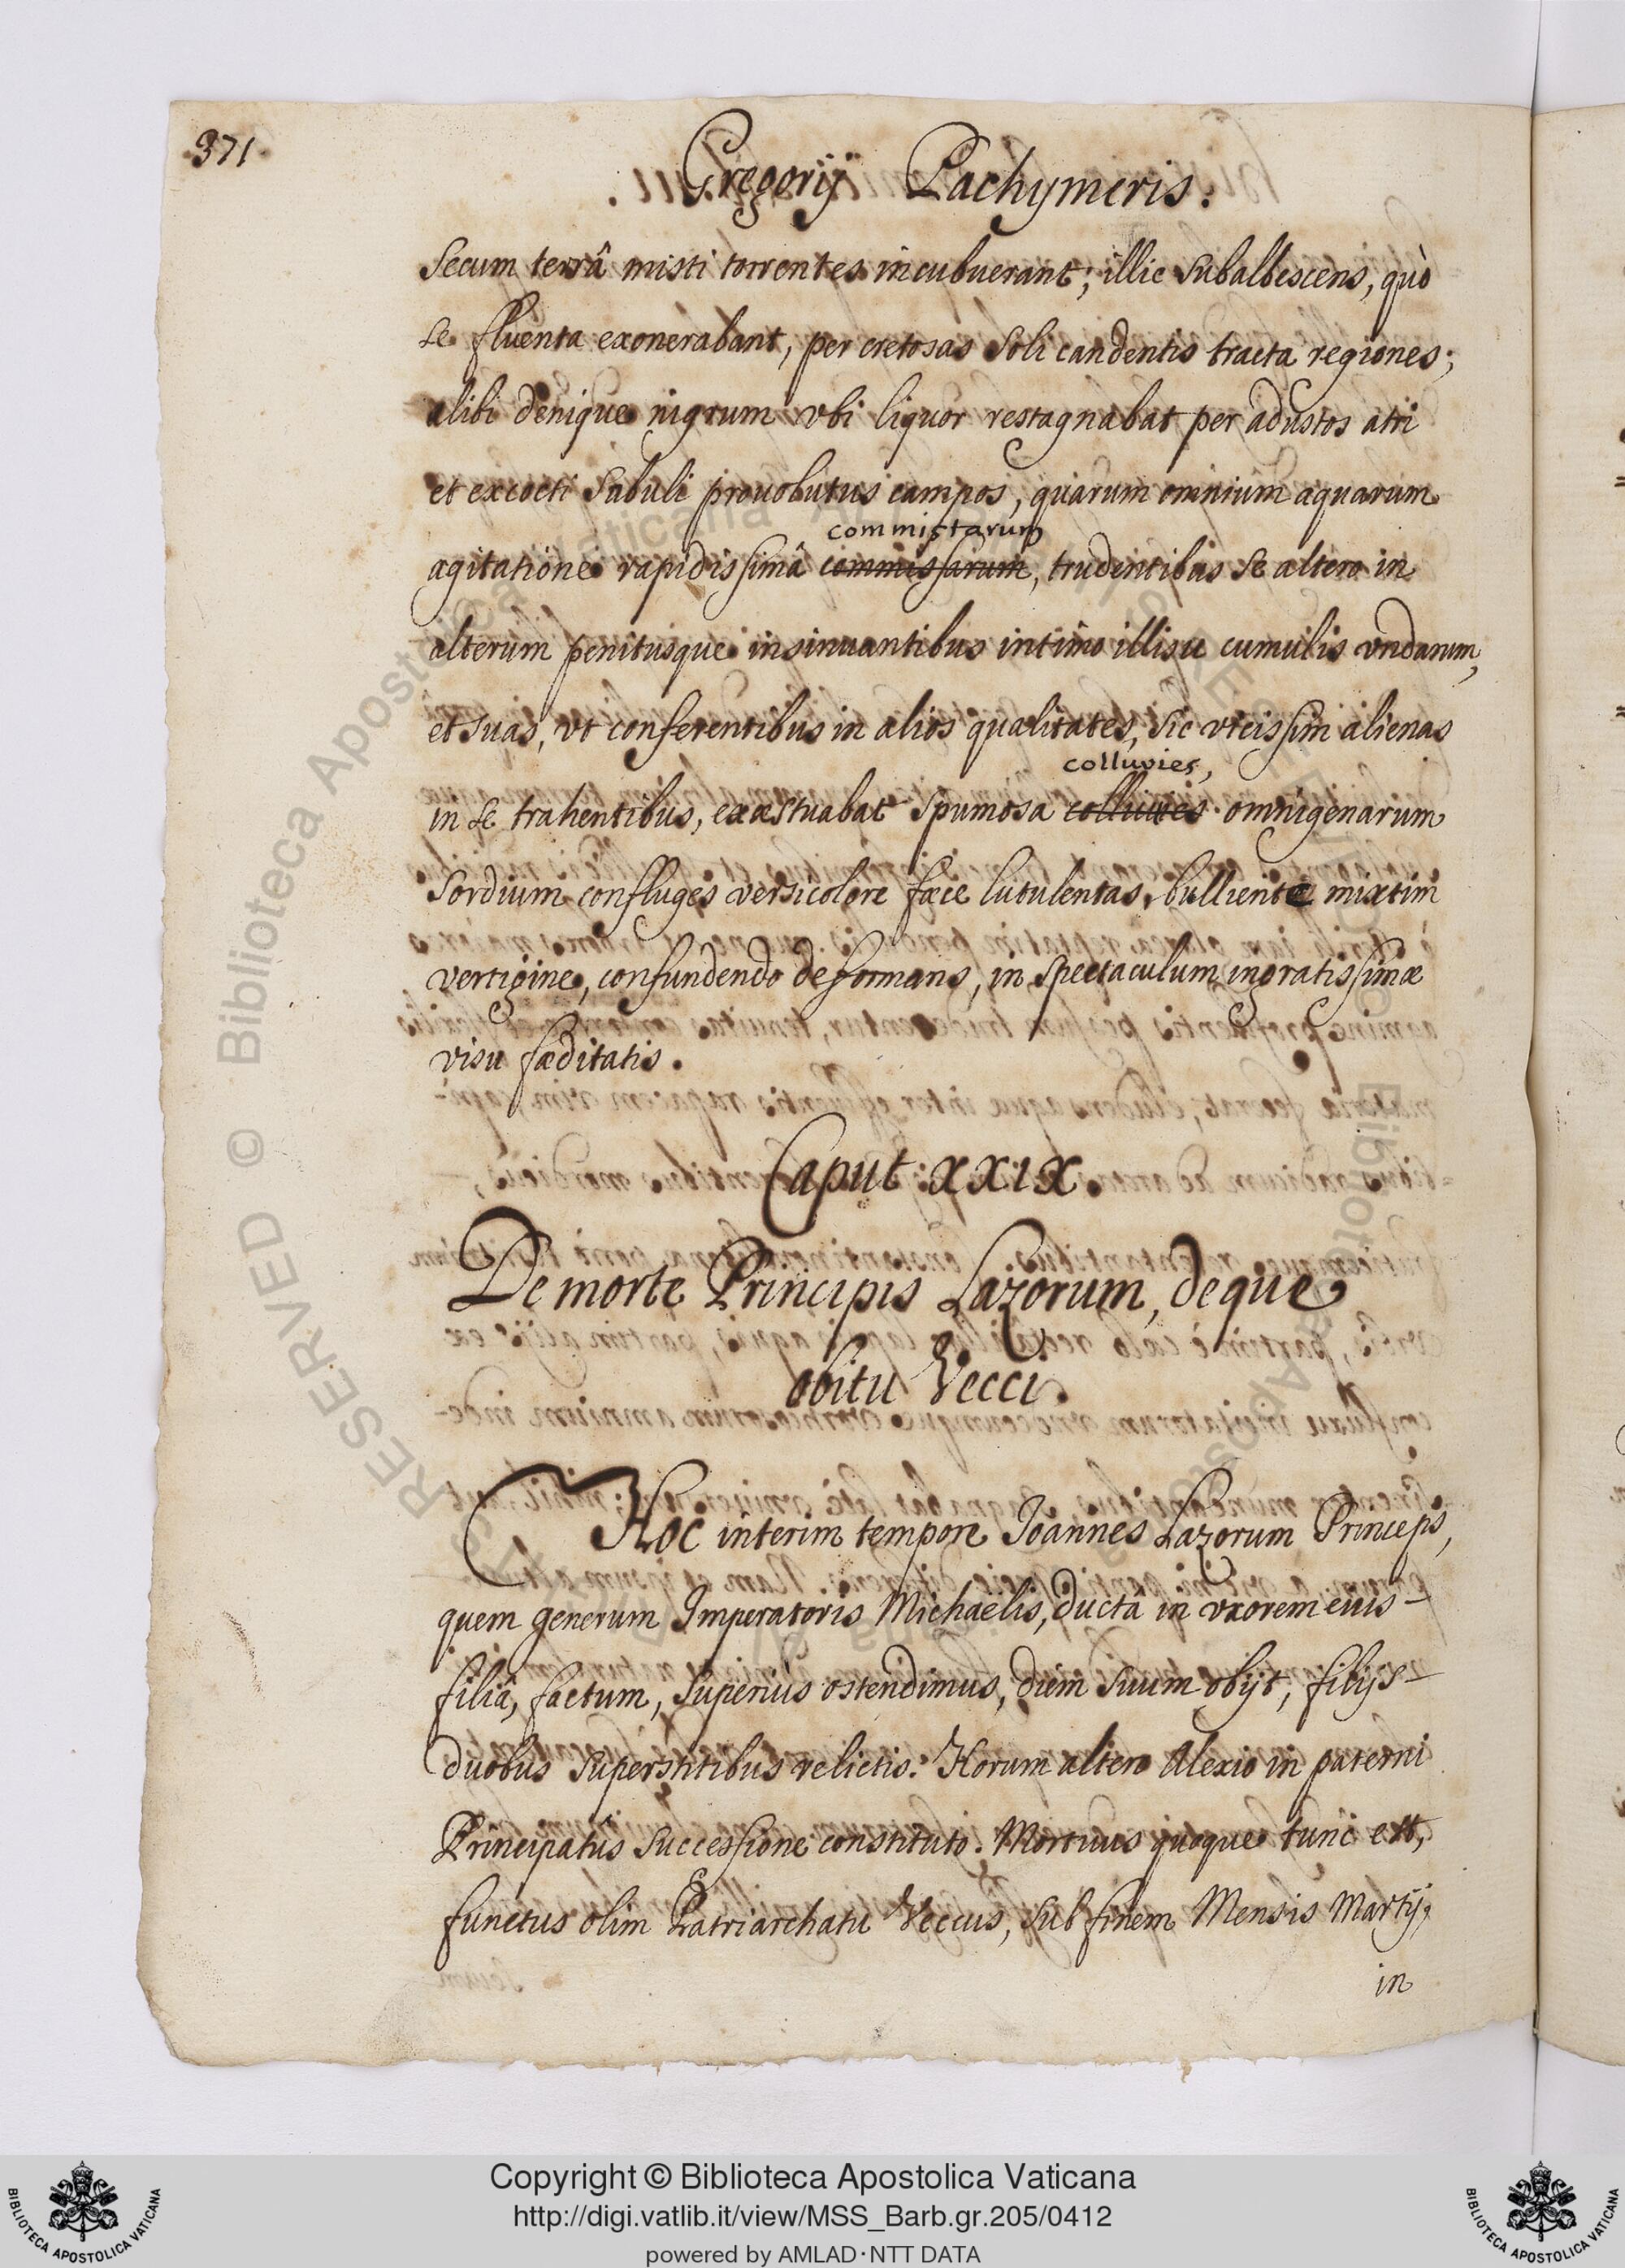 371
Gregorij Pachymeris.
Secum terrâ misti torrentes incubuerant; illic subalbescens, quò
se fluenta exonerabant, per cretosas soli candentis tracta regiones;
alibi denique nigrum vbi liquor restagnabat per adustos atri
et excocti sabuli prouolutus campos, quarum omnium aquarum
commistarum
agitatione rapidissimâ commissarum, trudentibus se altero in
alterum penitusque insinuantibus intimo illisu cumulis vndarum,
et suas, vt conferentibus in alios qualitates, sic vicissim alienas
colluvies,
in se trahentibus, exæstuabat spumosa colluvies omnigenarum
sordium confluges versicolore fæce lutulentas, bulliente mixtim
vertigine, confundendo deformans, in spectaculum ingratissimæ
visu fæditatis.
Caput XXIX.
De morte Principis Lazorum, deque
obitu Vecci.
Hoc interim tempore Joannes Lazorum Princeps,
quem generum Imperatoris Michaelis, ductâ in vxorem eius
filiâ, factum, superiùs ostendimus, diem suum obijt, filijs
duobus superstitibus relictis. Horum altero Alexio in paterni
Principatûs successione constituto. Mortuus quoque tunc est,
functus olim Patriarchatu Veccus, sub finem Mensis Martij,
in
Copyright © Biblioteca Apostolica Vaticana
http://digi.vatlib.it/view/MSS_Barb.gr.205/0412
powered by AMLAD·NTT DATA
BIBLIOTECA APOSTOLICA VATICANA
BIBLIOTECA APOSTOLICA VATICANA